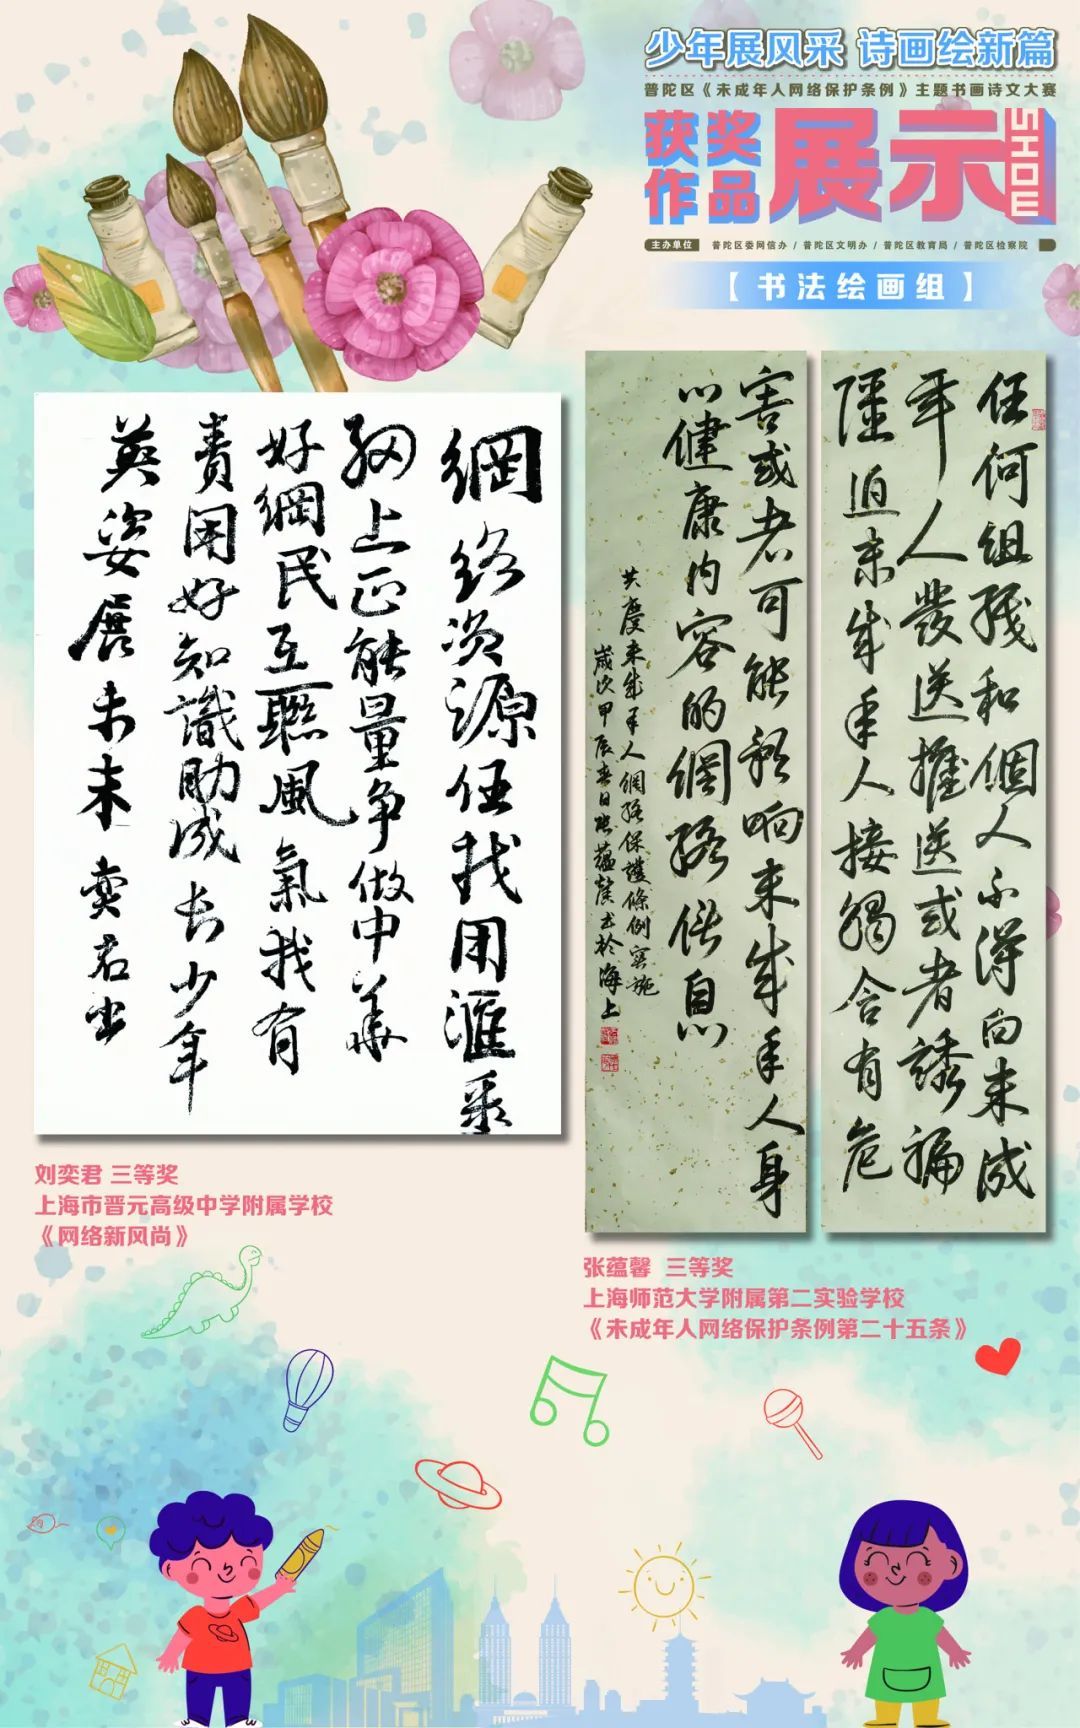 少年展风采 诗画绘新篇
普陀区《未成年人网络保护条例》主题书画诗文大赛
获奖作品展示
SHOW
主办单位 普陀区委网信办 / 普陀区文明办 / 普陀区教育局 / 普陀区检察院
【书法绘画组】
網络资源任我用滙聚
網上正能量争做中華
好網民互聯風氣我有
責用好知識助成长少年
英姿展未来 奕君书
刘奕君 三等奖
上海市晋元高级中学附属学校
《网络新风尚》
任何组織和個人不得向未成
年人發送推送或者誘骗
强迫未成年人接觸含有危
害或者可能影响未成年人身
心健康内容的網络信息
共慶未成年人網络保護條例實施
歲次甲辰春日张蕴馨书於海上
张蕴馨 三等奖
上海师范大学附属第二实验学校
《未成年人网络保护条例第二十五条》